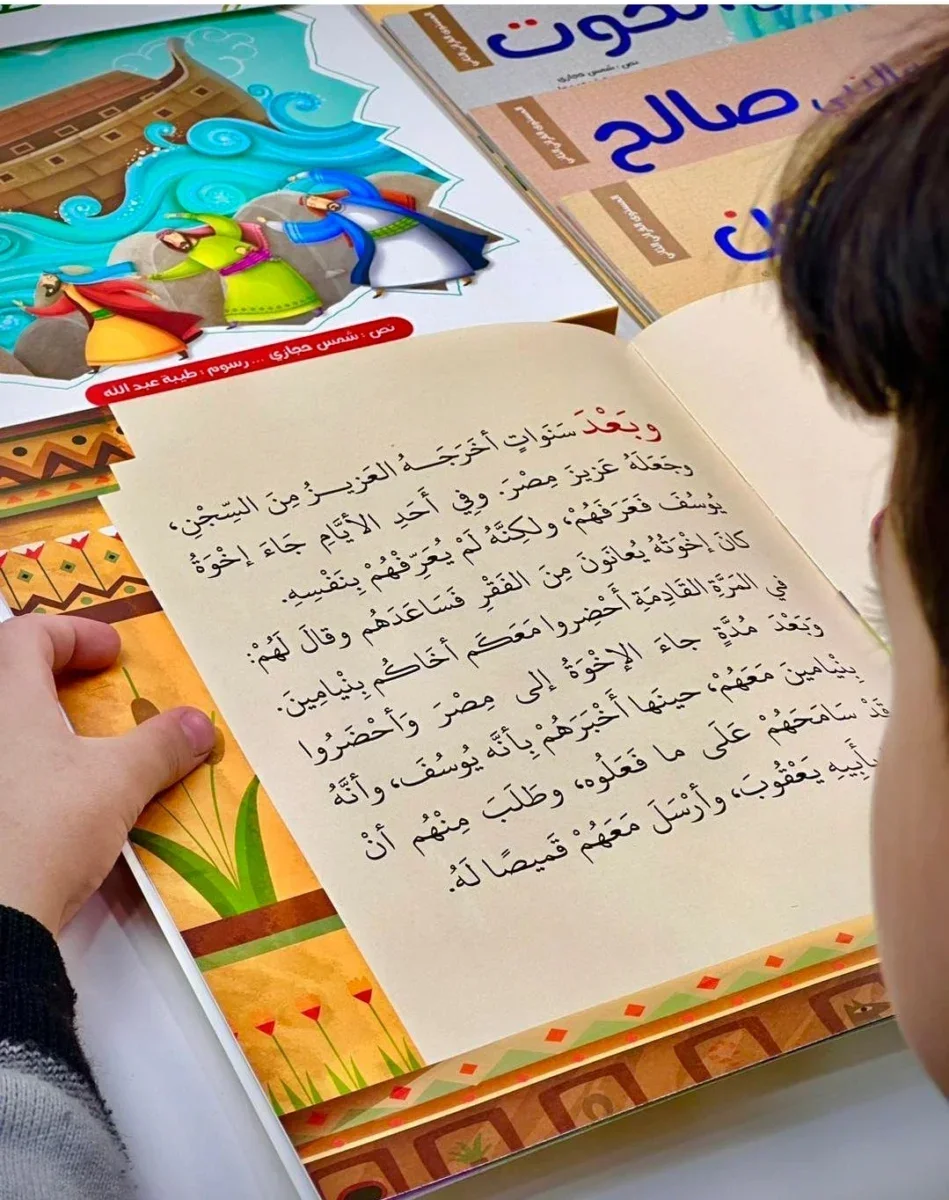 الحوت
نص : شمس حجازي
صالح
النبي
نص : شمس حجازي ... رسوم : طيبة عبد الله
وبَعْدَ سَنَواتٍ أخَرَجَهُ العَزيزُ مِنَ السِّجْنِ،
وجَعَلَهُ عَزيزَ مِصْرَ. وفِي أَحَدِ الأيَّامِ جَاءَ إخْوَةُ
يُوسُفَ فَعَرَفَهُمْ، ولكِنَّهُ لَمْ يُعَرِّفْهُمْ بِنَفْسِهِ.
كانَ إخْوَتُهُ يُعانَونَ مِنَ الفَقْرِ فَسَاعَدَهُم وقالَ لَهُمْ:
في المَرَّةِ القَادِمَةِ أَحْضِروا مَعَكَم أخَاكُم بِنْيامِينَ.
وَبَعْدَ مُدَّةٍ جاءَ الإخْوَةُ إلى مِصْرَ وَأحْضَروا
بِنْيامينَ مَعَهُمْ، حينَها أَخْبَرَهُمْ بِأنَّه يُوسُفَ، وأنَّهُ
قَدْ سَامَحَهُمْ عَلَى ما فَعَلُوه، وطَلَبَ مِنْهُم أنْ
بأَبيهِ يَعْقُوبَ، وأرْسَلَ مَعَهُمْ قَميصًا لَهُ.